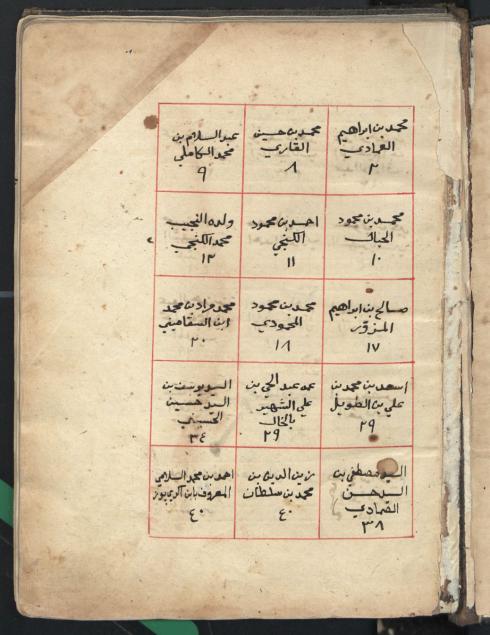 محمد بن ابراهيم
العمادي
٢
محمد بن حسين
القاري
٨
عبد السلام بن
محمد الكاملي
٩
محمد بن محمود
الحبال
١٠
احمد بن محمود
الكنجي
١١
ولده النجيب
محمد الكنجي
١٣
صالح بن ابراهيم
المزور
١٧
محمد بن محمود
المحمودي
١٨
محمد مراد بن محمد
ابن السقاميني
٢٠
اسعد بن محمد بن
علي بن الطويل
٢٩
عمه عبد الحي بن
علي الشهير
بالخال
٢٩
السيد يوسف بن
السيد حسين
الحسيني
٣٤
السيد مصطفى بن
السيد حسن
الصمادي
٣٨
زين الدين بن
محمد بن سلطان
٤٠
احمد بن محمد السلامي
المعروف بابن
٤٠